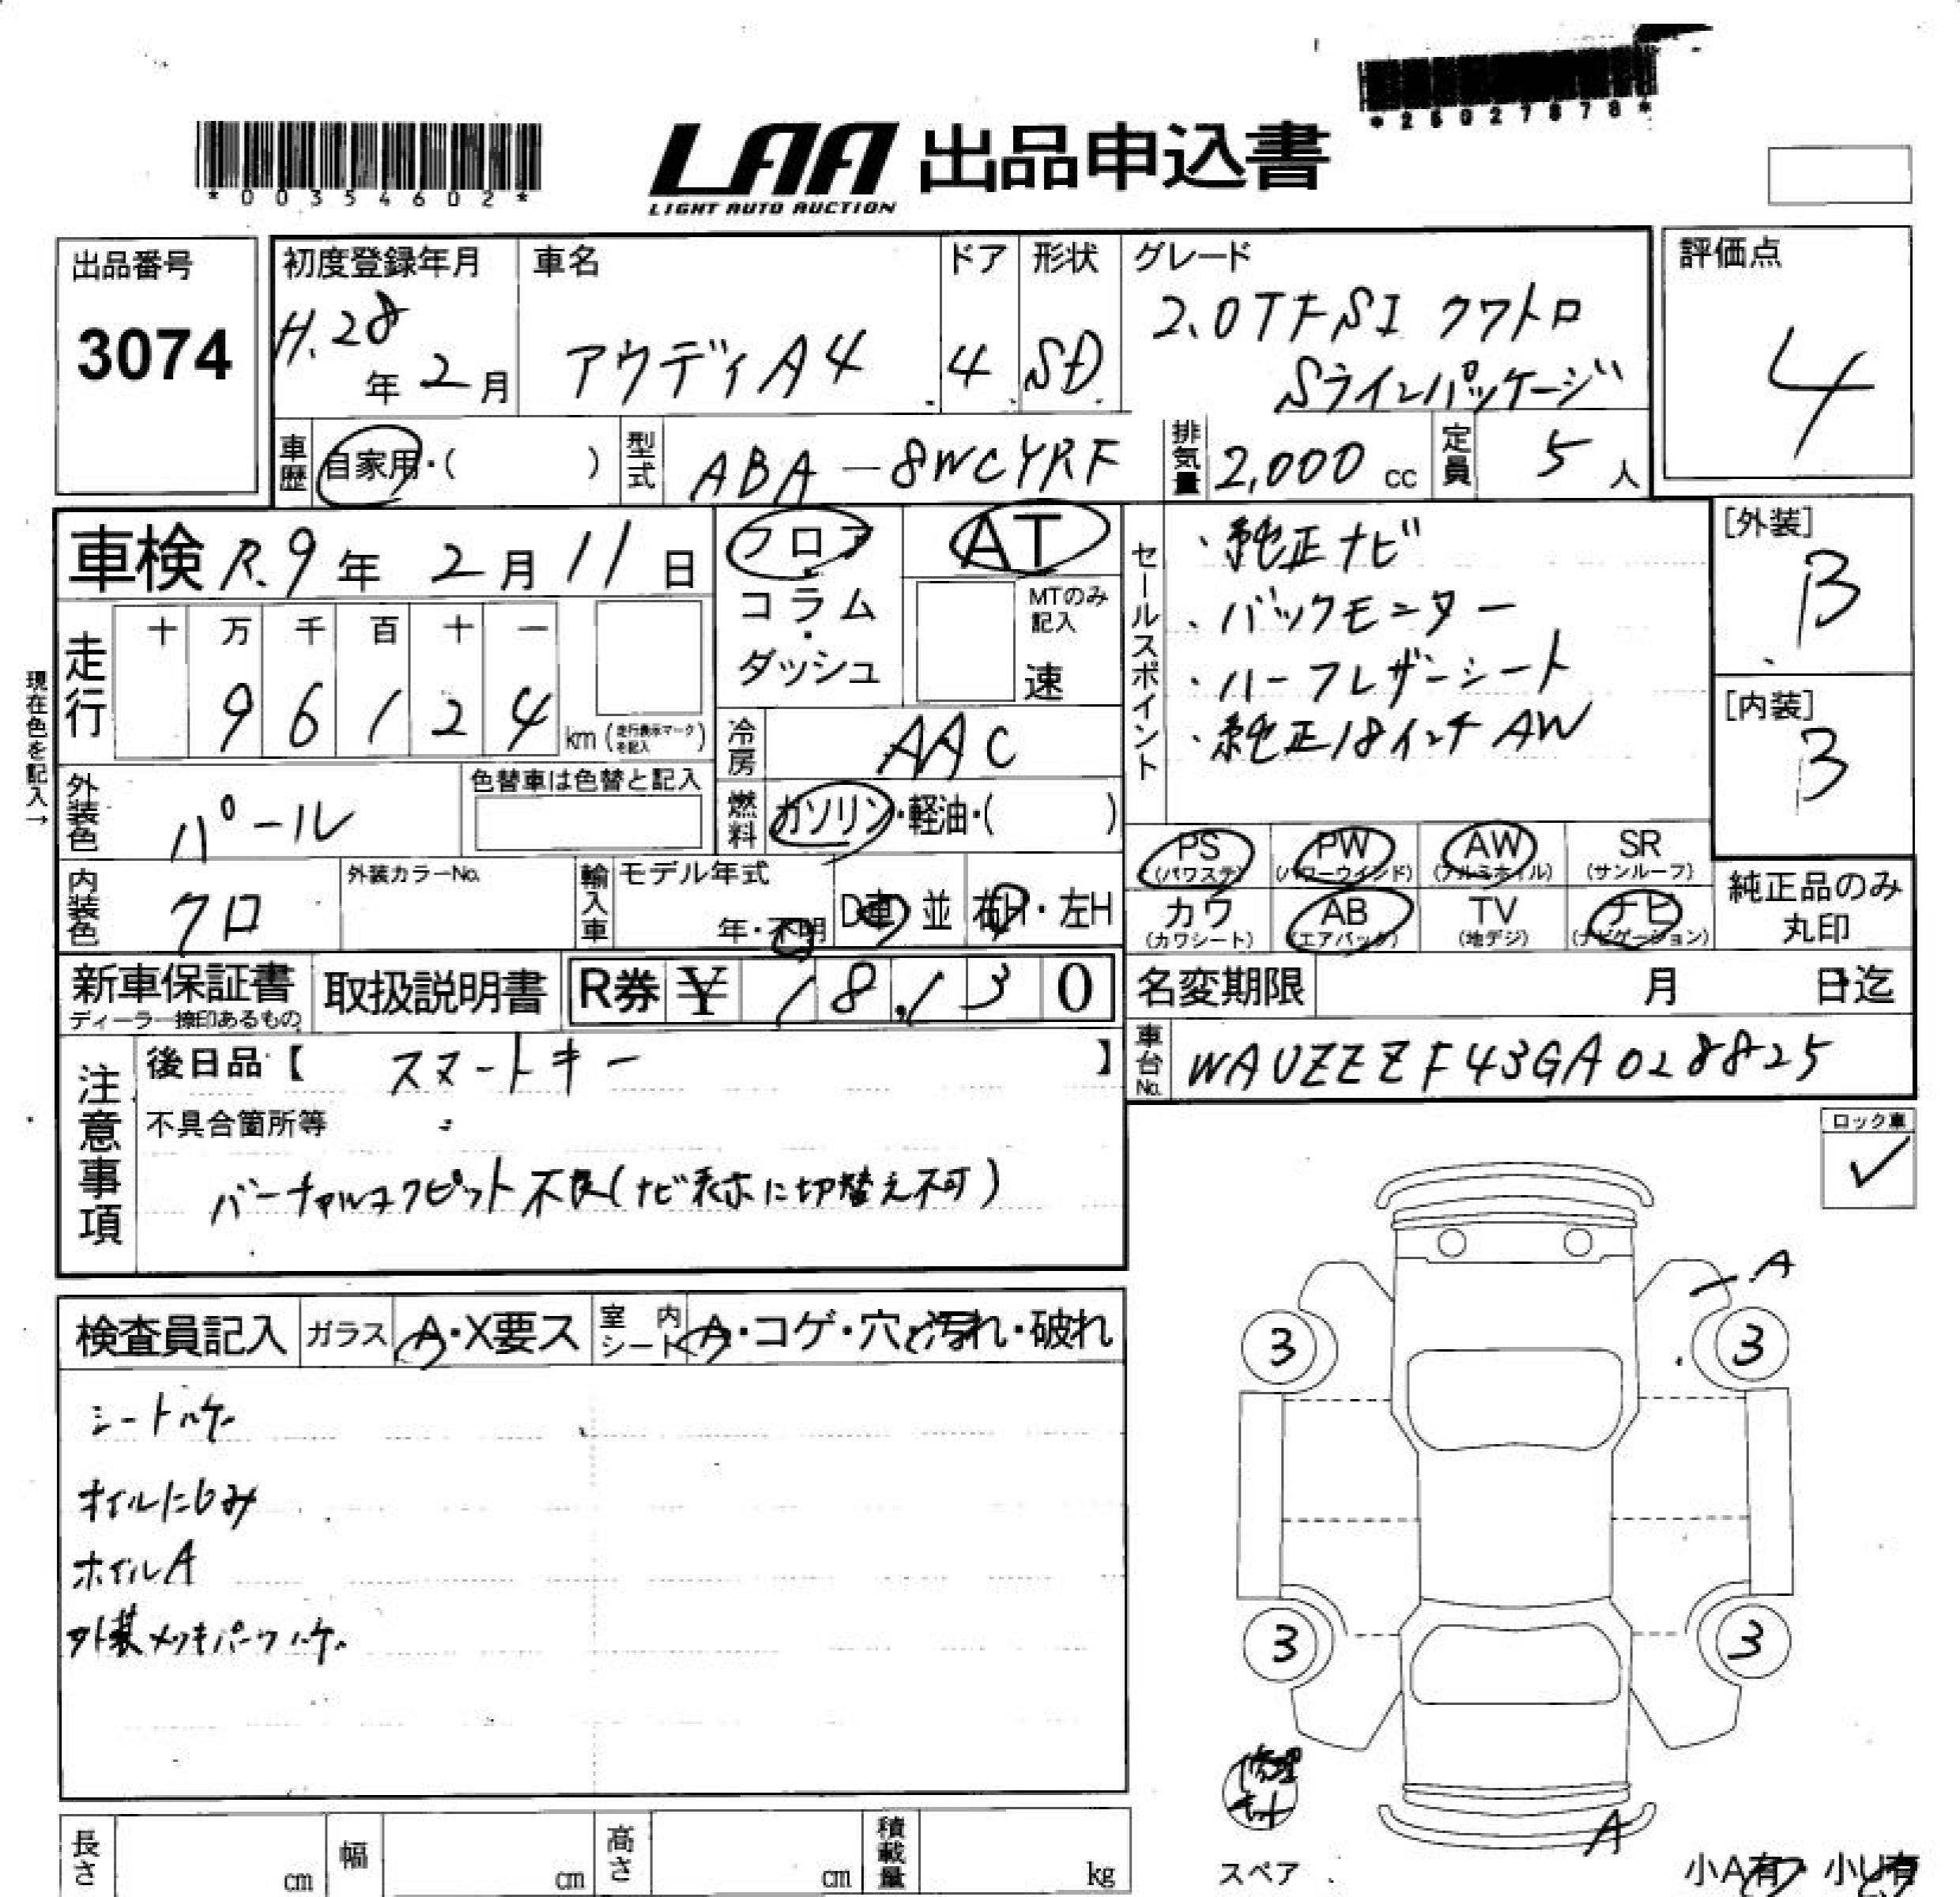 *00354602*
LAA 出品申込書
LIGHT AUTO AUCTION
*25027878*
出品番号
3074
初度登録年月
H.28年2月
車名
アウディA4
ドア
4
形状
SD
グレード
2.0TFSI クワトロ
Sラインパッケージ
評価点
4
車歴
自家用・( )
型式
ABA-8WCYRF
排気量
2,000 cc
定員
5人
車検 R.9年 2月 11日
フロア・コラム・ダッシュ
AT
MTのみ記入
速
セールスポイント
・純正ナビ
・バックモニター
・ハーフレザーシート
・純正18インチAW
[外装]
B
[内装]
B
現在色を記入→
走行
十 万 千 百 十 一
9 6 1 2 4 km
(走行表示マークを記入)
冷房
AAC
外装色
パール
色替車は色替と記入
燃料
ガソリン・軽油・( )
内装色
クロ
外装カラーNo.
輸入車
モデル年式
年・不明
D車・並
右H・左H
PS
(パワステ)
PW
(パワーウインド)
AW
(アルミホイル)
SR
(サンルーフ)
カワ
(カワシート)
AB
(エアバッグ)
TV
(地デジ)
ナビ
(ナビゲーション)
純正品のみ
丸印
新車保証書
ディーラー捺印あるもの
取扱説明書
R券 ¥ 18,130
名変期限 月 日迄
車台No.
WAUZZZF43GA028825
注意事項
後日品【 スマートキー 】
不具合箇所等
バーチャルコクピット不良(ナビ表示に切替え不可)
ロック車
✓
検査員記入
ガラス
A・X要ス
室内シート
A・コゲ・穴・汚れ・破れ
シートハゲ
オイルにじみ
ホイルA
外装メッキパーツハゲ
A
3
3
3
3
修理キット
A
スペア
小A有・小U有
長さ cm
幅 cm
高さ cm
積載量 kg